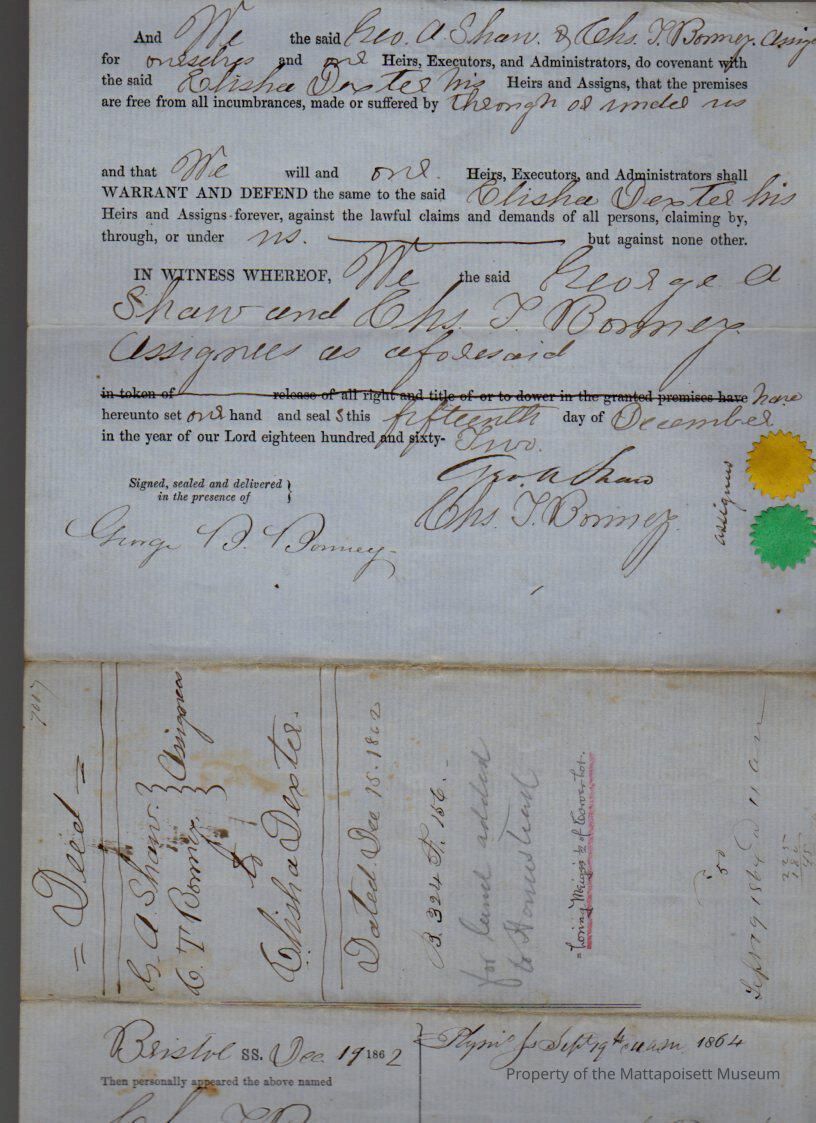 And We the said Geo. A Shaw. & Chs. T. Bonney. Assig
for ourselves and our Heirs, Executors, and Administrators, do covenant with
the said Elisha Dexter his Heirs and Assigns, that the premises
are free from all incumbrances, made or suffered by through or under us
and that We will and our. Heirs, Executors, and Administrators shall
WARRANT AND DEFEND the same to the said Elisha Dexter his
Heirs and Assigns forever, against the lawful claims and demands of all persons, claiming by,
through, or under us. but against none other.
IN WITNESS WHEREOF, We the said George A
Shaw and Chs. T. Bonney.
Assignees as aforesaid
in token of release of all right and title of or to dower in the granted premises have have
hereunto set our hand and seal s this fifteenth day of December
in the year of our Lord eighteen hundred and sixty- Two.
Signed, sealed and delivered
in the presence of
Geo. A Shaw
Chs. T. Bonney
assignees
George B. Bonney
7017
= Deed =
G. A. Shaw.
C. T Bonney.
Assignees
to
Elisha Dexter.
Dated. Dec 15. 1862
B. 324 P. 156.
for land added
to Homestead
Loring Meiggs ½ of Cowen lot.
50
Sept 19 1864 11 am
Bristol SS. Dec. 19 1862
Sept 19th 11 am 1864
Then personally appeared the above named
Property of the Mattapoisett Museum